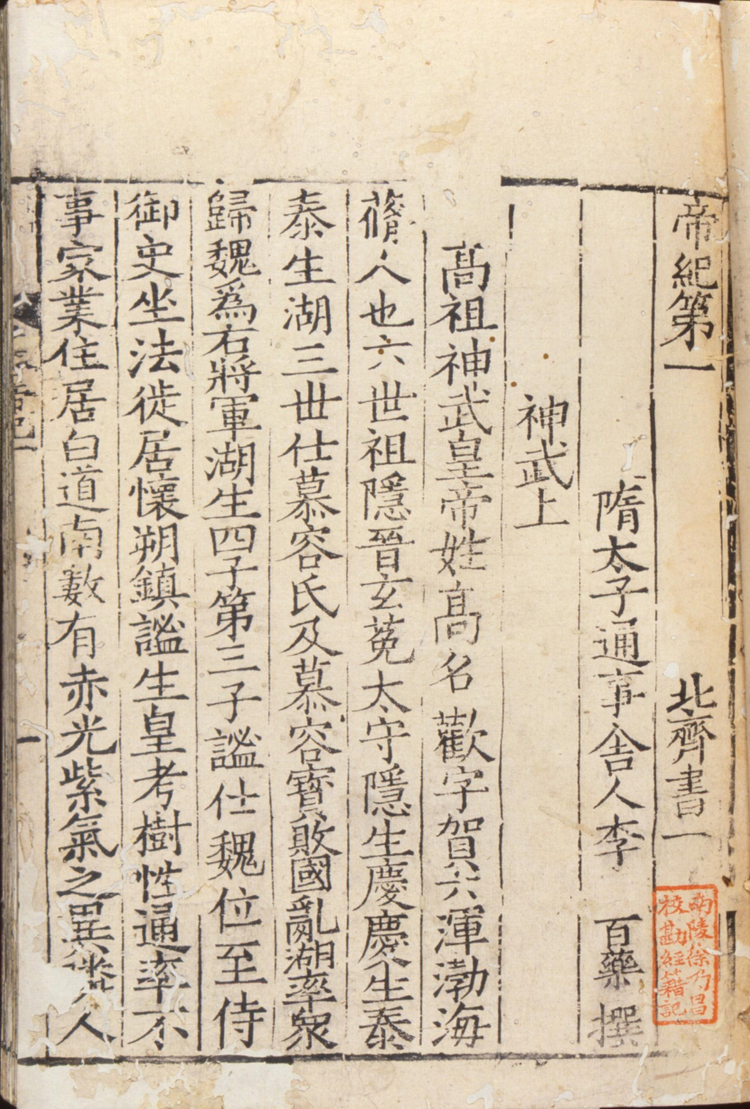 帝紀第一 北齊書一
隋太子通事舍人李 百藥 撰
神武上
高祖神武皇帝姓高名歡字賀六渾渤海
蓨人也六世祖隱晉玄菟太守隱生慶慶生泰
泰生湖三世仕慕容氏及慕容寶敗國亂湖率衆
歸魏爲右將軍湖生四子第三子謐仕魏位至侍
御史坐法徙居懷朔鎮謐生皇考樹性通率不
事家業住居白道南數有赤光紫氣之異隣人
南陵徐乃昌
校勘經籍記